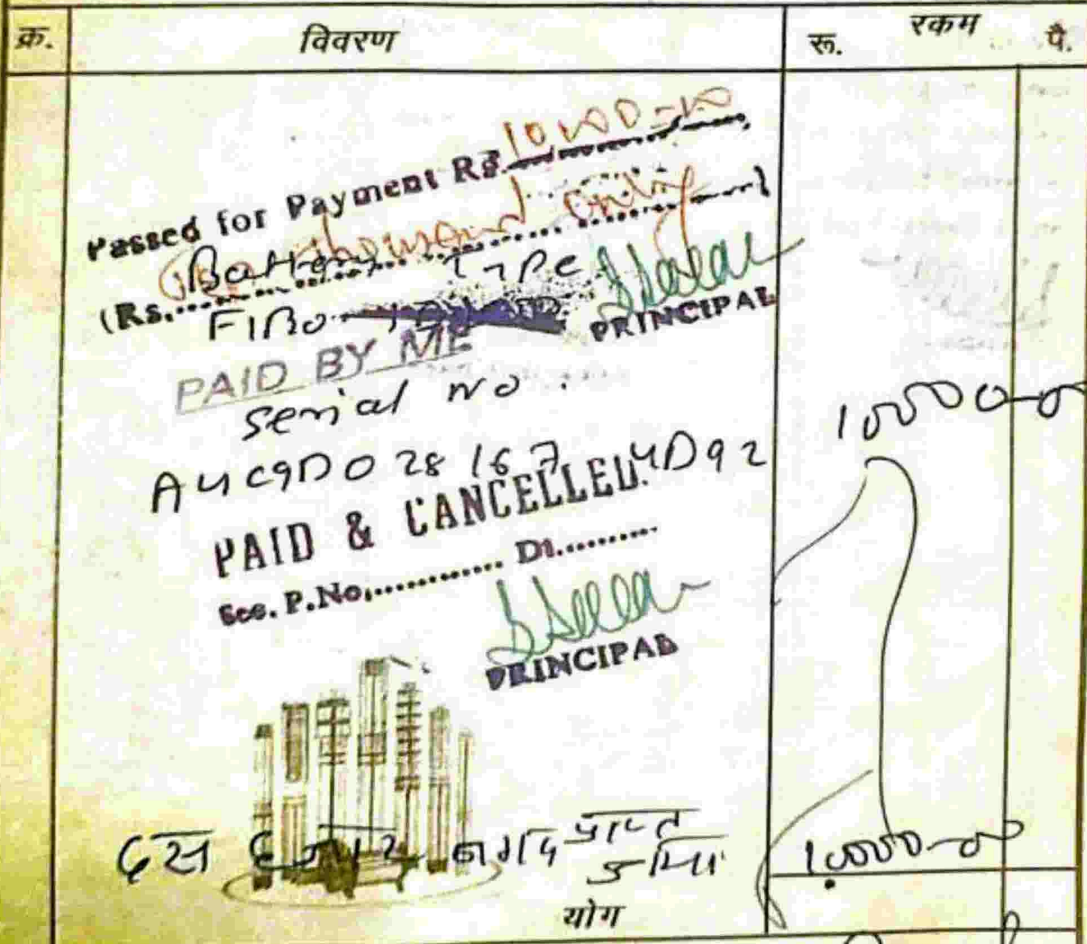 क्र. विवरण रू. रकम पै.
Passed for Payment Rs. 10000=00
(Rs. Ten thousand only)
Battery Type
FIBO
PRINCIPAL
PAID BY ME
Serial No.
10000-0
A4C9D0281674D92
PAID & CANCELLED.
Sce. P.No. Dt.
PRINCIPAL
दस हजार नगद प्राप्त
किया
10000-00
योग